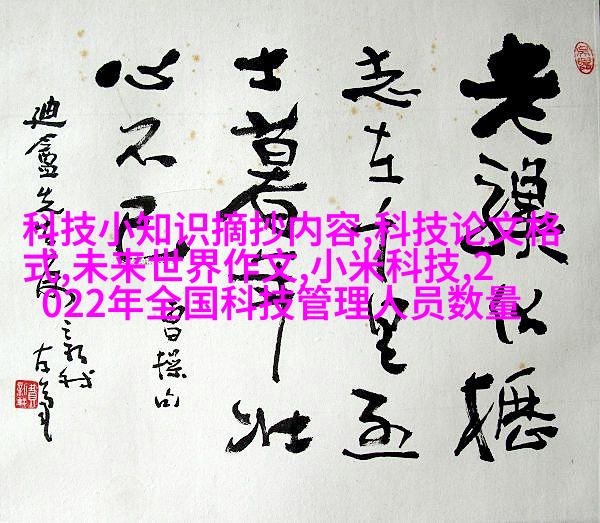 老驥伏櫪
志在千里烈
士暮年壮
心不已
曹操句
迪盦先生
科技小知识摘抄内容,科技论文格
式,未来世界作文,小米科技,2
022年全国科技管理人员数量